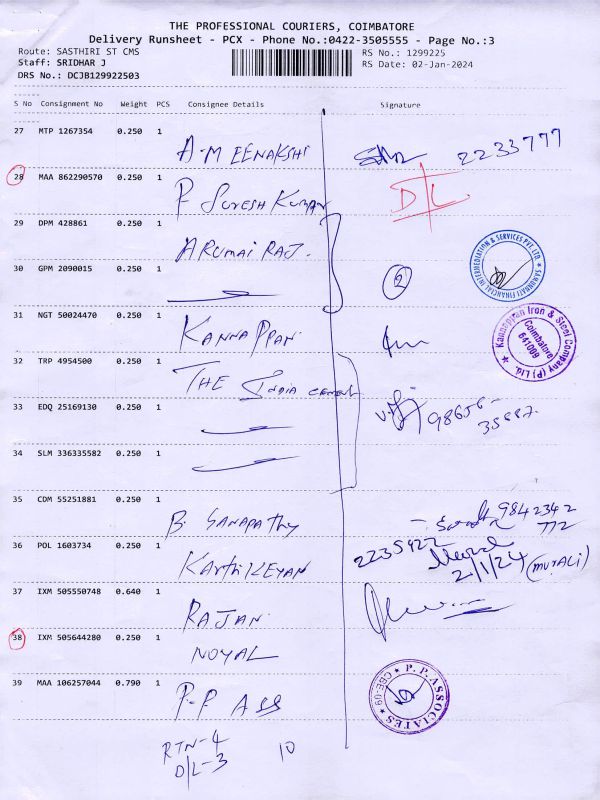 THE PROFESSIONAL COURIERS, COIMBATORE
Delivery Runsheet - PCX - Phone No.:0422-3505555 - Page No.:3
Route: SASTHIRI ST CMS
RS No.: 1299225
Staff: SRIDHAR J
RS Date: 02-Jan-2024
DRS No.: DCJB129922503
S No Consignment No Weight PCS Consignee Details Signature
27 MTP 1267354 0.250 1
A.MEENAKSHI
2233777
28 MAA 862290570 0.250 1
P SURESH KUMAR
D/L
29 DPM 428861 0.250 1
ARUMAI RAJ.
SAMUNNATI FINANCIAL INTERMEDIATION & SERVICES PVT LTD.
30 GPM 2090015 0.250 1
2
31 NGT 50024470 0.250 1
KANNAPPAN
Kannappan Iron & Steel Company (P) Ltd.
Coimbatore
641009
32 TRP 4954500 0.250 1
THE INDIA CEMENT
33 EDQ 25169130 0.250 1
98656-
35887.
34 SLM 336335582 0.250 1
35 CDM 55251881 0.250 1
B. GANAPATHY
9842342
772
36 POL 1603734 0.250 1
KARTHIKEYAN
2235922
2/1/24 (MURALI)
37 IXM 505550748 0.640 1
RAJAN
38 IXM 505644280 0.250 1
NOYAL
39 MAA 106257044 0.790 1
P.P ASS
P.P. ASSOCIATES
CBE-09
RTN-4
D/L-3
10